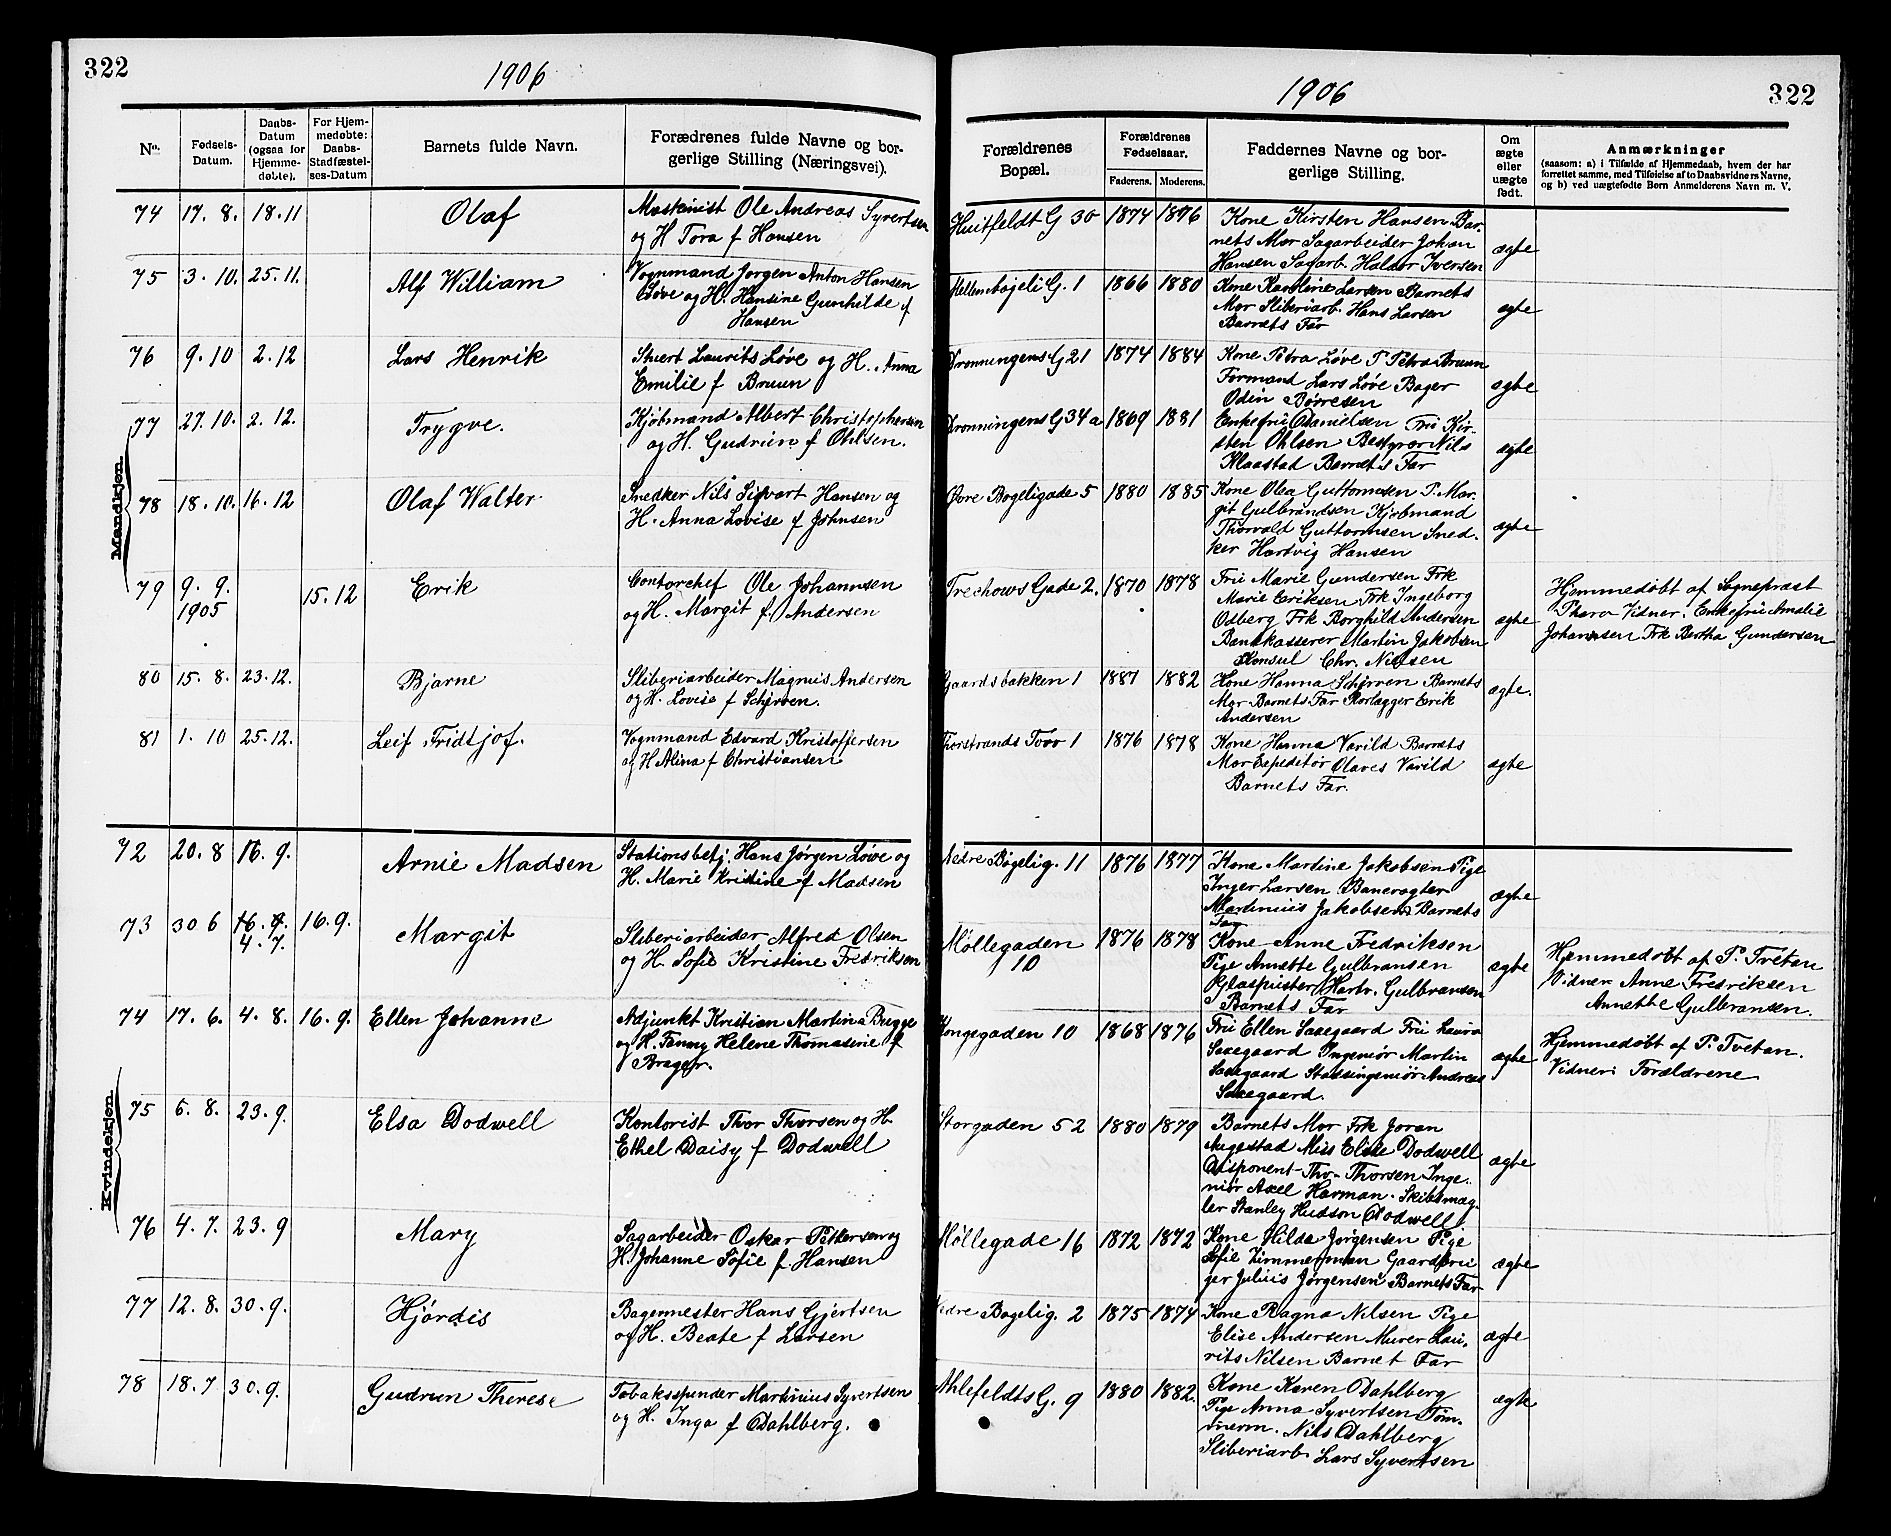 322
1906
No.
Fødsels-Datum.
Daabs-Datum (ogsaa for Hjemme-døbte).
For Hjem-medøbte: Daabs-Stadfæstel-ses-Datum
Barnets fulde Navn.
Forædrenes fulde Navne og bor-
gerlige Stilling (Næringsvei).
1906
322
Forældrenes Bopæl.
Forældrenes Fødselsaar.
Faderens. Moderens.
Faddernes Navne og bor-
gerlige Stilling.
Om ægte eller uægte født.
Anmærkninger
(saasom: a) i Tilfælde af Hjemmedaab, hvem der har
forrettet samme, med Tilføielse af to Daabsvidners Navne,
og b) ved uægtefødte Børn Anmelderens Navn m. V.
Mandkjøn.
74 17. 8. 18. 11 Olaf
Maskinist Ole Andreas Syvertsen
og H Tora f Hansen
Huitfeldt G 30 1874 1876
Kone Kirsten Hansen Bar-
nets Mor Sagarbeider Johan
Hansen Sagarb. Haldor Iversen
ægte
75 3. 10. 25. 11. Alf William
Vognmand Jørgen Anton Hansen
Løve og H. Hansine Gunhilde f
Hansen
G. 1 1866 1880
Kone Karoline Larsen Barnets
Mor Sliberiarb. Hans Larsen
Barnets Far
ægte
76 9. 10 2. 12 Lars Henrik
Stuert Laurits Løve og H. Anna
Emilie f Bruun
Dronningens G 21 1874 1884
Kone Petra Løve P. Petra Bruun
Formand Lars Løve Bager
Odin Børresen
ægte
77 27. 10. 2. 12. Trygve.
Kjøbmand Albert Christophersen
og H. Gudrun f Ohlsen.
Dronningens G 34 a 1869 1881
Enkefru Danielsen Fru Kir-
sten Ohlsen Bestyrer Nils
Klaastad Barnets Far
ægte
78 18. 10. 16. 12 Olaf Walter
Snedker Nils Sigvart Hansen og
H. Anna Lovise f Johnsen
Øvre Bøgeligade 5 1880 1885
Kone Olea Guttormsen P. Mar-
git Gulbrandsen Kjøbmand
Thorvald Guttormsen Sned-
ker Hartvig Hansen
ægte
79 9. 9. 1905 15. 12 Erik
Contorchef Ole Johannsen
og H. Margit f. Andersen
Trechows Gade 2. 1870 1878
Fru Marie Gundersen Frk
Marie Eriksen Frk Ingeborg
Osberg Frk Borghild Andersen
Bankkasserer Martin Jakobsen
Konsul Chr. Nielsen
ægte
Hjemmedøbt af Sogneprest
Vidner. Enkefru Amalie
Johannsen Frk Bertha Gundersen
80 15. 8. 23. 12. Bjarne
Sliberiarbeider Magnus Andersen
og H. Lovise f Schjerven.
Gaardsbakken 1 1881 1882
Kone Hanna Schjerven Barnets
Mor Barnets Far Rørlægger Erik
Andersen
ægte.
81 1. 10 25. 12. Leif Fridtjof.
Vognmand Edvard Kristoffersen
og H Alina f Christiansen
Thorstrands Torv 1 1876 1878
Kone Hanna Varild Barnets
Mor Expeditør Olaves Varild
Barnets Far.
ægte
Kvindekjøn.
72 20. 8 16. 9. Arnie Madsen
Stationsbetj. Hans Jørgen Løwe og
H. Marie Kristine f Madsen
Nedre Bøgelig. 11 1876 1877
Kone Martine Jakobsen Pige
Inger Larsen Banevogter
Martinius Jakobsen Barnets
Far
ægte
73 30 6 16. 9. 4. 7. 16. 9. Margit
Sliberiarbeider Alfred Olsen
og H. Sofie Kristine Fredriksen
Møllegaden
10
1876 1878
Kone Anne Fredriksen
Pige Annette Gulbransen
Glaspuster Hartv. Gulbransen
Barnets Far
ægte
Hjemmedøbt af P. Tvetan
Vidner Anne Fredriksen
Annette Gulbransen.
74 17. 6. 4. 8. 16. 9. Ellen Johanne
Adjunkt Kristian Martin Brygge
og H. Fanny Helene Thomasine f
Brager.
Kongegaden 10 1868 1876
Fru Ellen Saxegaard Fru Laura
Saxegaard Ingeniør Martin
Saxegaard Stadsingeniør Andreas
Saxegaard.
ægte
Hjemmedøbt af P. Tvetan.
Vidner: Forældrene
75 6. 8. 23. 9. Elsa Dodwell
Kontorist Thor Thorsen og H.
Ethel Daisy f Dodwell
Storgaden 52 1880 1879
Barnets Mor Frk Joran
Augestad Miss Elsie Dodwell
Disponent Tho. Thorsen Inge-
niør Axel Harman. Skibsmæg-
ler Stanley Hudson Dodwell
ægte
76 4. 7. 23. 9 Mary
Sagarbeider Oskar Pettersen og
H. Johanne Sofie f. Hansen
Møllegade 16 1872 1872
Kone Hilda Jørgensen Pige
Sofie Zimmerman Gaardbru
ger Julius Jørgensen Barnets Far
ægte
77 12. 8. 30. 9. Hjørdis
Bagermester Hans Gjertsen
og H. Beate f Larsen
Nedre Bøgelig. 2 1875 1874
Kone Ragna Nilsen Pige
Elise Andersen Murer Lau-
rits Nilsen Barnet Far
ægte
78 18. 7 30. 9. Gudrun Therese
Tobaksspinder Martinius Syvertsen
og H. Inga f Dahlberg.
Ahlefeldts G. 9 1880 1882.
Kone Karen Dahlberg
Pige Anna Syvertsen Tøm-
merm. Nils Dahlberg
Sliberiarb. Lars Syvertsen
ægte